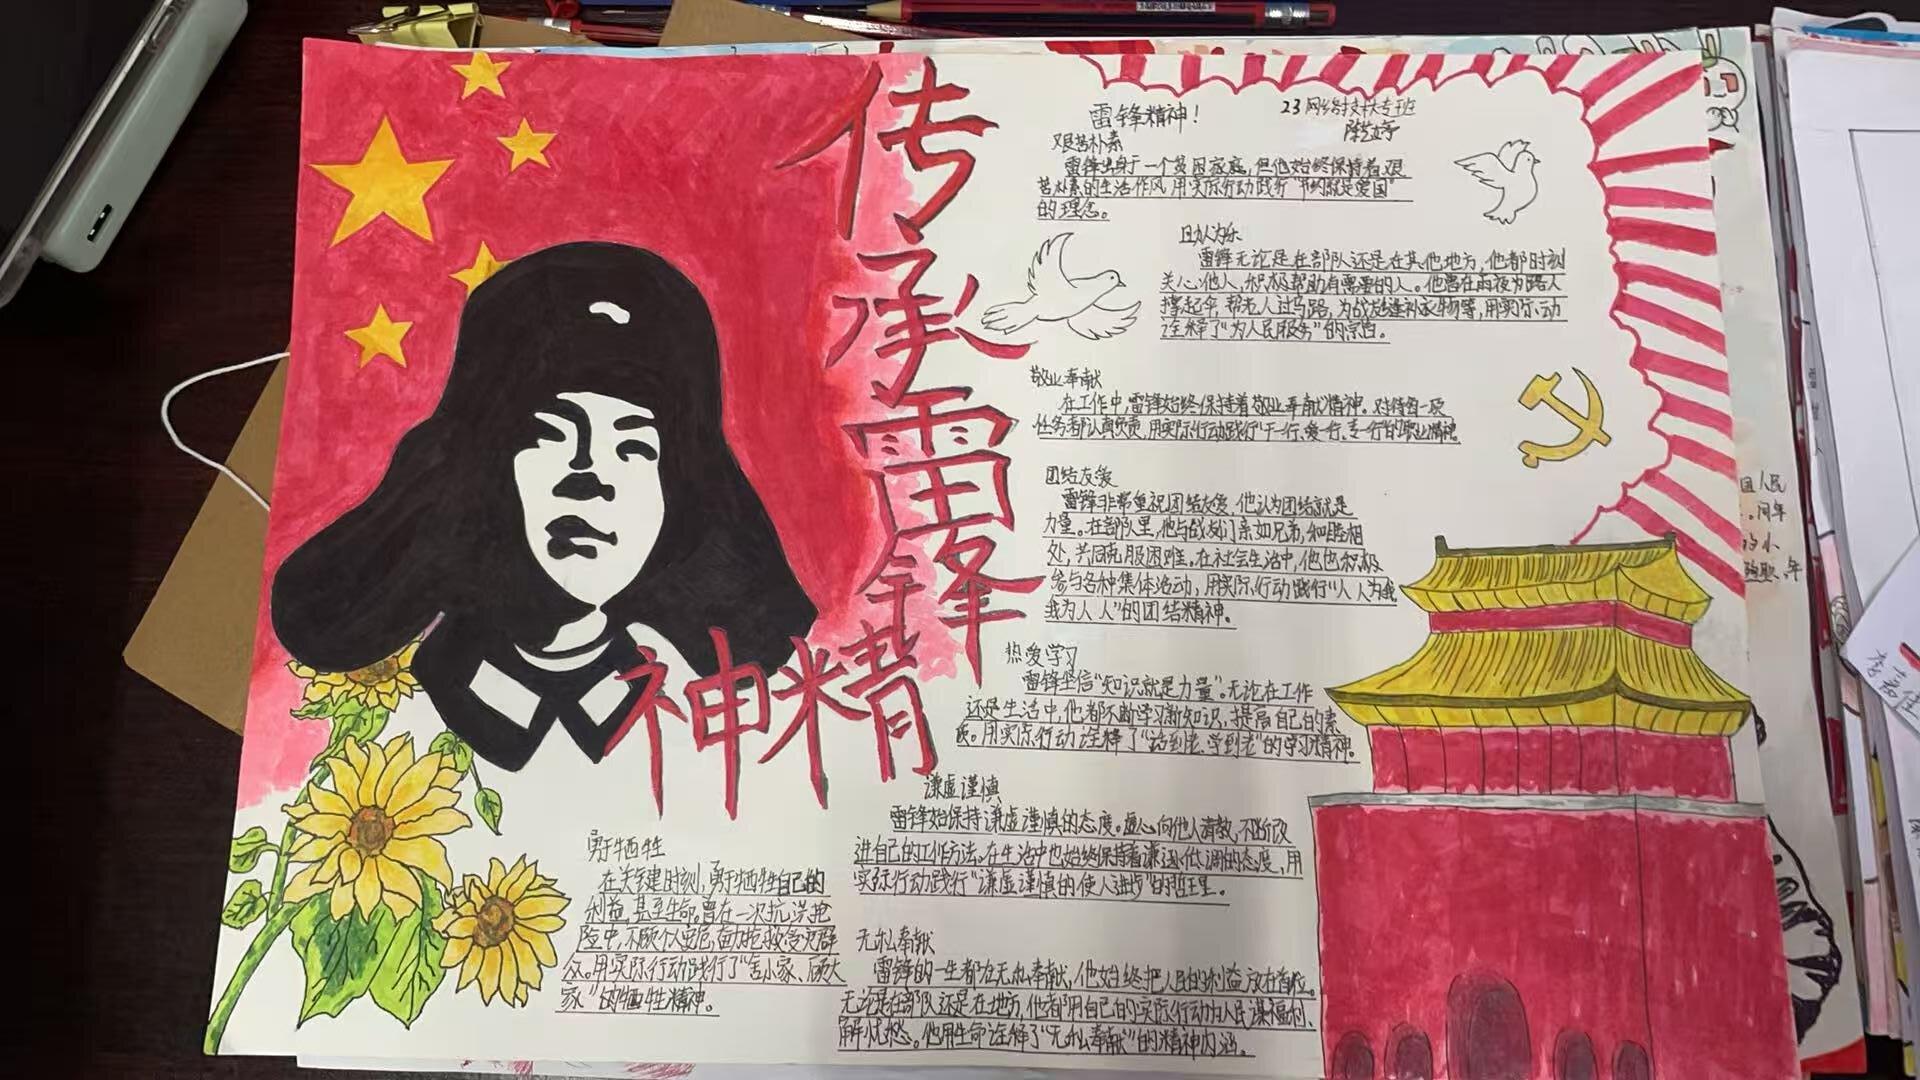 传承雷锋
精神
雷锋精神！
23网络技术大专班
陈艺婷
艰苦朴素
雷锋出身于一个贫困家庭，但他始终保持着艰
苦朴素的生活作风，用实际行动践行"节约就是爱国"
的理念。
助人为乐
雷锋无论是在部队还是在其他地方，他都时刻
关心他人，积极帮助有需要的人。他曾在雨夜为路人
撑起伞，帮老人过马路，为战友缝补衣物等，用实际行动
诠释了"为人民服务"的宗旨。
敬业奉献
在工作中，雷锋始终保持着敬业奉献精神。对待每一项
任务都认真负责，用实际行动践行"干一行、爱一行、专一行"的职业精神。
团结友爱
雷锋非常重视团结友爱，他认为团结就是
力量。在部队里，他与战友们亲如兄弟，和睦相
处，共同克服困难。在社会生活中，他也积极
参与各种集体活动，用实际行动践行"人人为我
我为人人"的团结精神。
热爱学习
雷锋坚信"知识就是力量"。无论在工作
还是生活中，他都不断学习新知识，提高自己的素
质。用实际行动诠释了"活到老、学到老"的学习精神。
谦虚谨慎
雷锋始保持谦虚谨慎的态度。虚心向他人请教，不断改
进自己的工作方法。在生活中也始终保持着谦逊低调的态度，用
实际行动践行"谦虚谨慎的使人进步"的哲理。
勇于牺牲
在关键时刻，勇于牺牲自己的
利益，甚至生命。曾在一次抗洪抢
险中，不顾个人安危，奋力抢救受灾群
众。用实际行动践行了"舍小家、顾大
家"的牺牲精神。
无私奉献
雷锋的一生都在无私奉献，他始终把人民的利益放在首位。
无论是在部队还是在地方，他都用自己的实际行动为人民谋福利、
解忧愁。他用生命诠释了"无私奉献"的精神内涵。